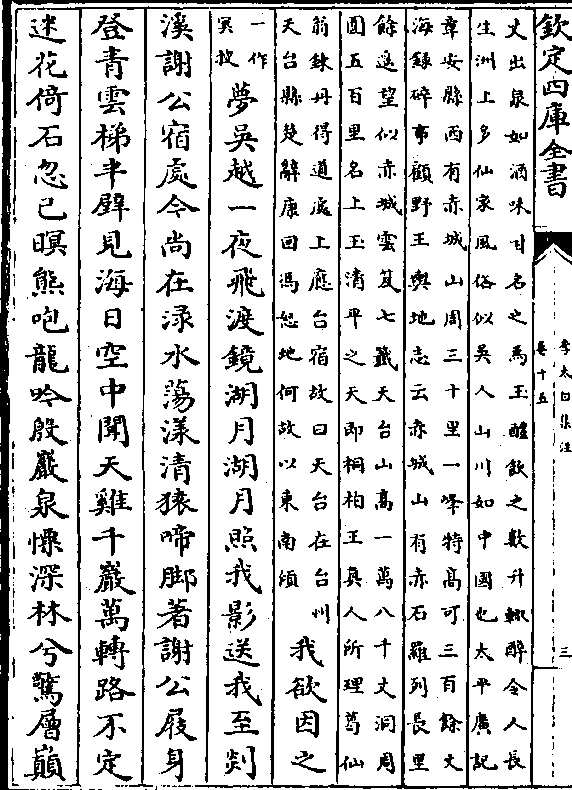 欽定四庫全書
李太白集注
卷十五
三
丈出泉如酒味甘名之為玉醴飲之數升輒醉令人長
生洲上多仙家風俗似吳人山川如中國也太平廣記
章安縣西有赤城山周三十里一峰特高可三百餘丈
海録碎事顧野王輿地志云赤城山有赤石羅列長里
餘遥望似赤城雲笈七籖天台山高一萬八千丈洞周
圓五百里名上玉清平之天即桐柏王真人所理葛仙
翁鍊丹得道處上應台宿故曰天台在台州
天台縣楚辭康回馮怒地何故以東南傾
我欲因之
一作
冥搜
夢吳越一夜飛渡鏡湖月湖月照我影送我至剡
溪謝公宿處今尚在渌水蕩漾清猿啼脚著謝公屐身
登青雲梯半壁見海日空中聞天雞千巖萬轉路不定
迷花倚石忽已暝熊咆龍吟殷巖泉慄深林兮驚層巔